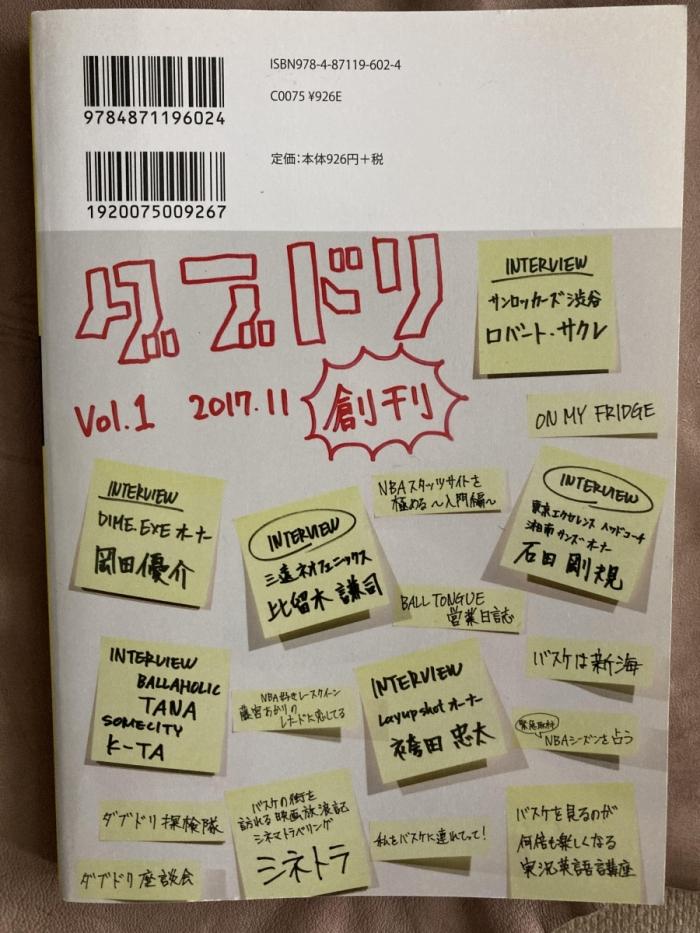 ISBN978-4-87119-602-4
C0075 ¥926E
9784871196024
定価:本体926円+税
1920075009267
ダブドリ
Vol.1 2017.11 創刊
INTERVIEW
サンロッカーズ渋谷
ロバート・サクレ
ON MY FRIDGE
INTERVIEW
DIME.EXE オーナー
岡田優介
INTERVIEW
三遠ネオフェニックス
比留木 謙司
NBAスタッツサイトを
極める〜入門編〜
INTERVIEW
東京エクセレンス ヘッドコーチ
湘南サンズ オーナー
石田 剛規
BALL TONGUE
営業日誌
INTERVIEW
BALLAHOLIC
TANA
SOMECITY
K-TA
NBA好きレースクイーン
藤宮あかりの
レナードに恋してる
INTERVIEW
Layup shot オーナー
袴田 忠太
バスケは新海
緊急取材
NBAシーズンを占う
ダブドリ 探検隊
バスケの街を
訪れる映画放浪記
シネマトラベリング
シネトラ
私をバスケに連れてって!
バスケを見るのが
何倍も楽しくなる
実況英語講座
ダブドリ 座談会